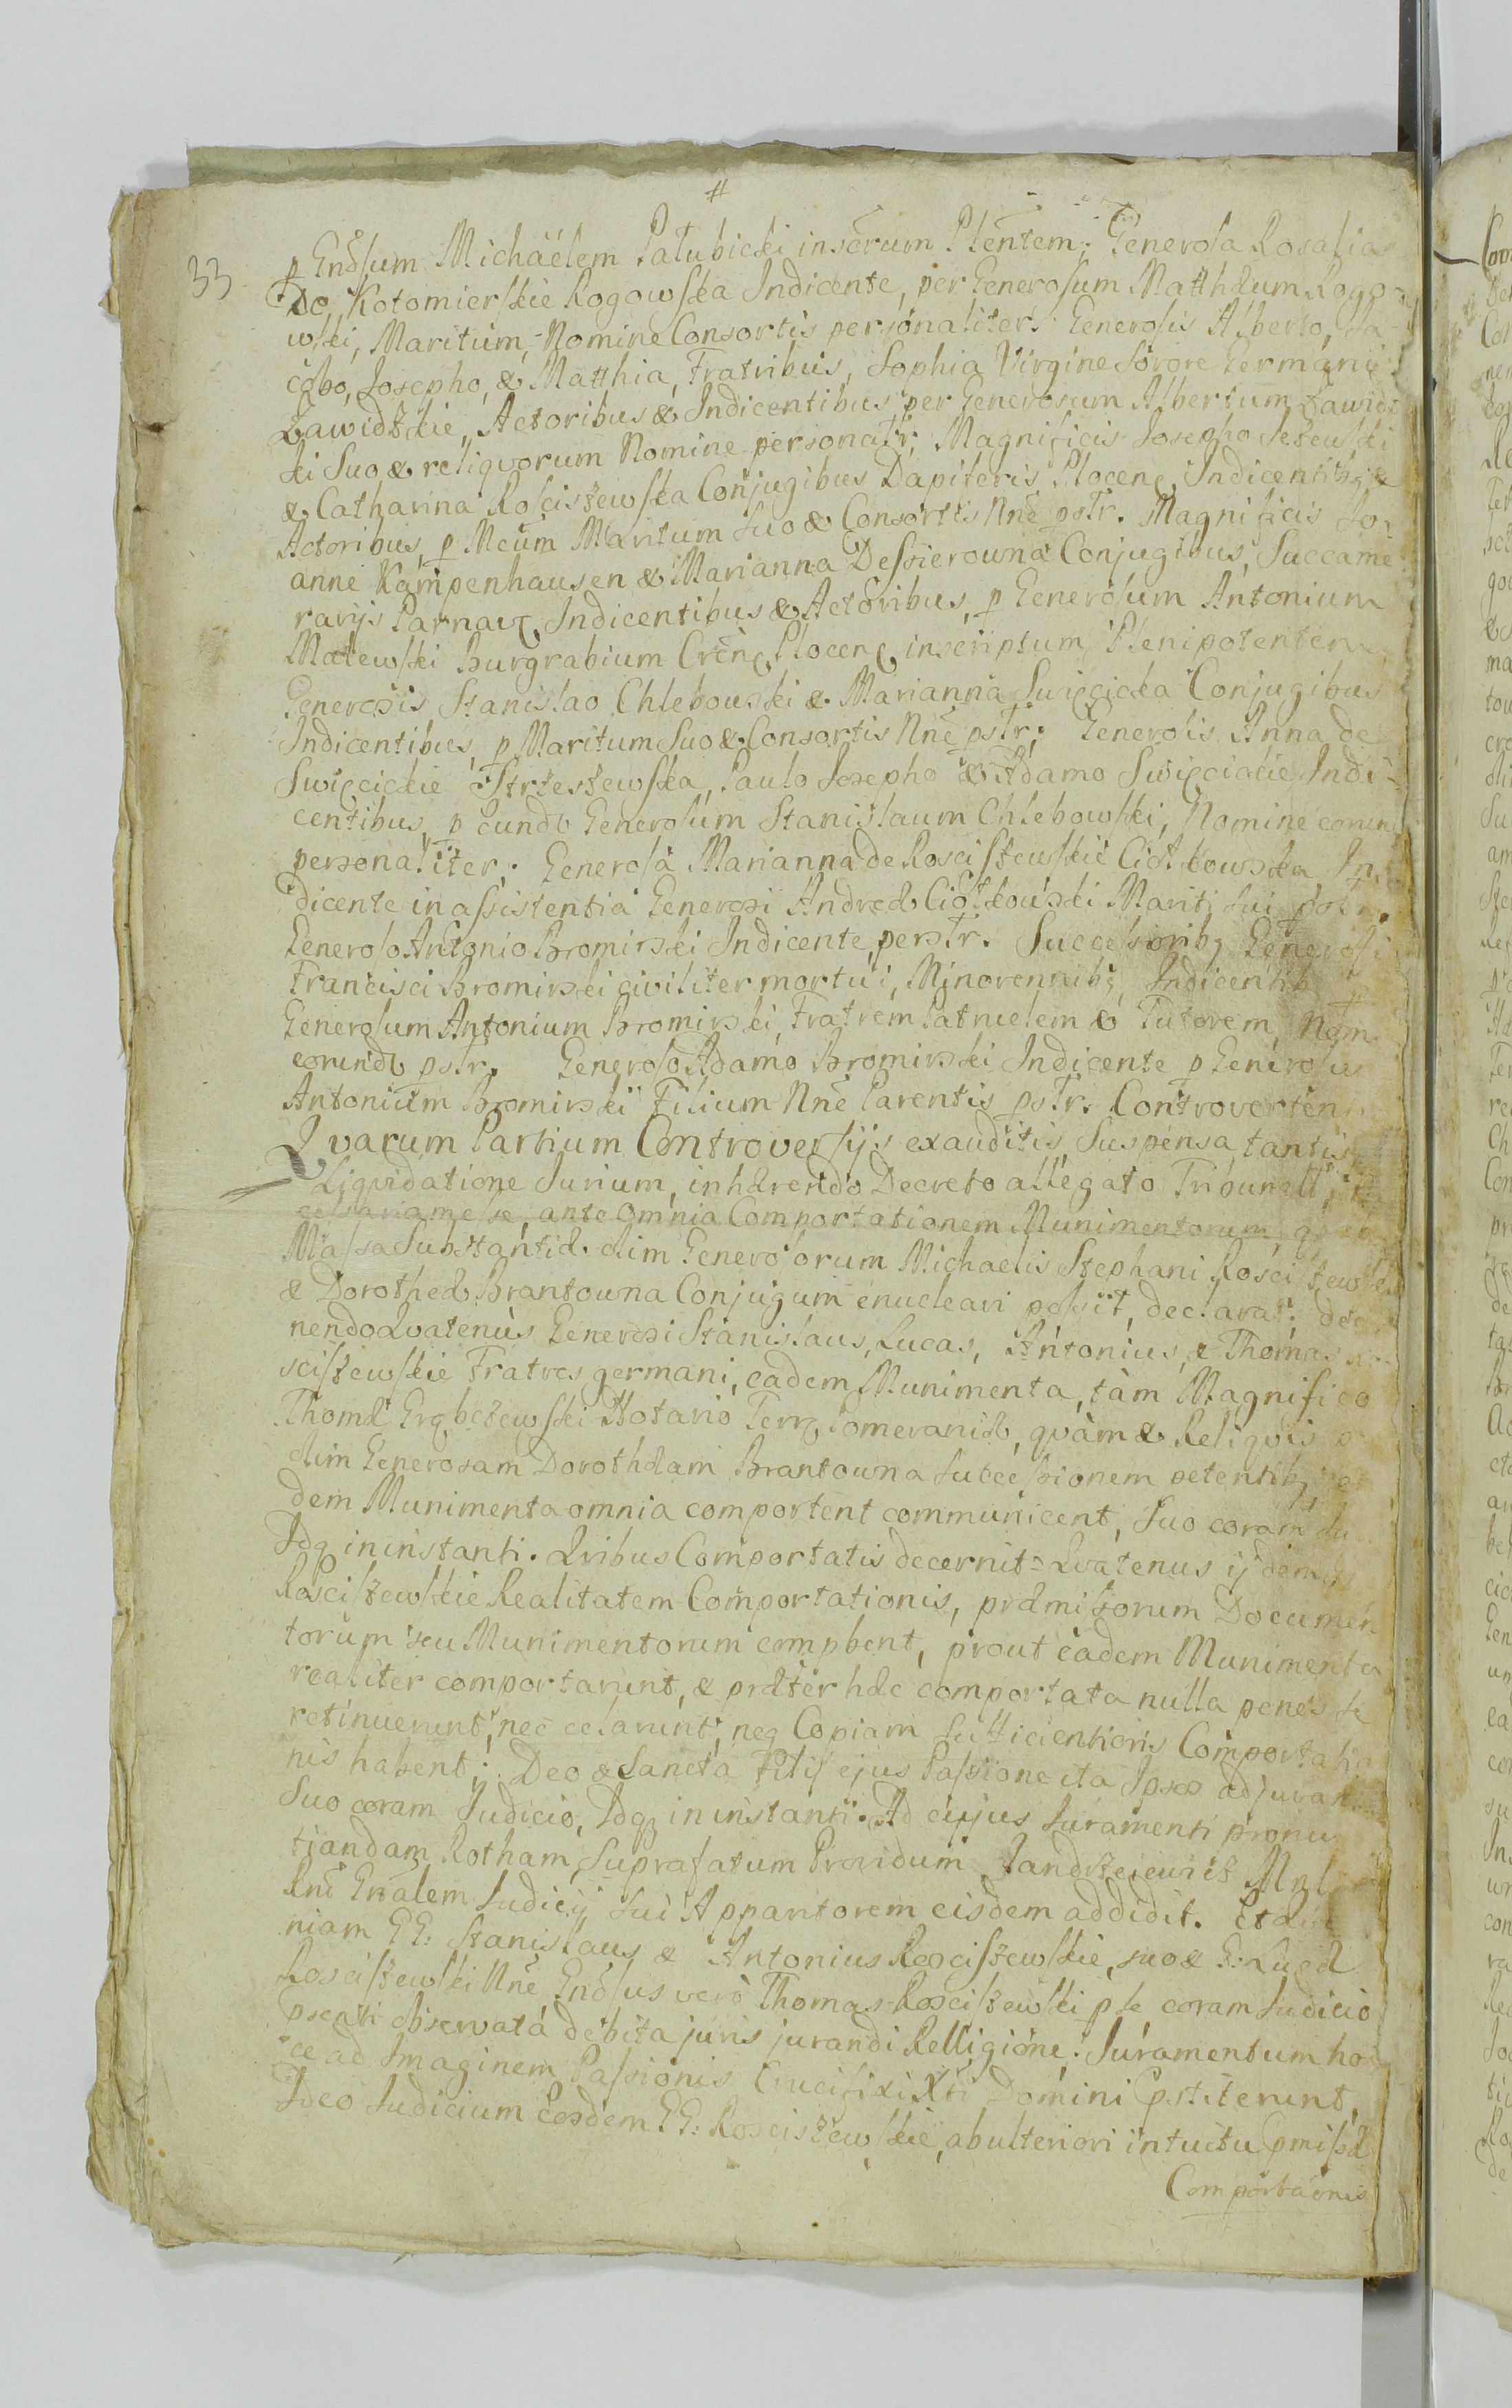 #
33
p Gnosum Michäelem Pałubicki inscrum Plentem; Generosa Rosalia
De Kotomierskie Rogowska Indicente, per Generosum Matthæum Rogo-
wski, Maritum, Nomine Consortis personaliter. Generosis Alberto, Ja-
cobo, Josepho, & Matthia, Fratribus, Sophia Virgine Sorore Germanis
Zawidzkie, Actoribus & Indicentibus, per Generosum Albertum Zawidz
ki Suo & reliqvorum Nomine personalr; Magnificis Josepho
& Catharina Rosciszewska Conjugibus Dapiferis Plocen, Indicentibq &
Actoribus, p Mcum Maritum suo & Consortis Nne pslr. Magnificis Jo-
anne Kampenhausen & Marianna Deszierowna Conjugibus, Succame
rarijs Parnav, Indicentibus & Actoribus, p Generosum Antonium
Malewski Burgrabium Plocen, inscriptum Plenipotentem
Generosis Stanislao Chlebowski & Marianna Swięcicka Conjugibus
Indicentibus, p Maritum Suo & Consortis Nne pslr; Generosis Anna de
Swięcickie Strzeszewska, Paulo Josepho & Adamo Swięcickie Indi-
centibus, p eundē Generosum Stanislaum Chlebowski, Nomine eorund
personaliter; Generosa Marianna de Rosciszewskie Ciołkowska In-
dicente in assistentia Generosi Andreæ Ciołkowski Mariti sui pslr.
Generoso Antonio Bromirski Indicente, perslr. Successoribq Generosi
Francisci Bromirski civiliter mortui, Minorennibq, Indicentib
Generosum Antonium Bromirski, Fratrem Patruelem & Tutorem, Nom
eorundē pslr. Generoso Adamo Bromirski Indicente p Generosu
Antonium Bromirski Filium Nne Parentis pslr. Controverten
Qvarum Partium Controversijs exauditis, Suspensa tantis
Liqvidatione Jurium, inhærendo Decreto allegato Tribunall
ante omnia Comportationem Munimentorum
Massa Substantiæ olim Generosorum Michaelis Stephani Rosciszewski
& Dorotheæ Brantowna Conjugum enucleari possit, declarat;
nendo Qvatenus Generosi Stanislaus, Lucas, Antonius, & Thomas
sciszewskie Fratres germani, eadem Munimenta, tàm Magnifico
Thomæ Grąbczewski Notario Terrę Pomeraniæ, qvàm & Reliqvis
olim Generosam Dorothæam Brantowna Successionem petentibq
dem Munimenta omnia comportent communicent, Suo coram Ju
Idq in instanti. Qvibus Comportatis decernit: Qvatenus ijdem
Rosciszewskie Realitatem Comportationis, præmissorum Documen
torum seu Munimentorum compbent, prout eadem Munimenta
realiter comportarunt, & præter hæc comportata nulla penes se
retinuerunt, nec celarunt, neq Copiam sufficientioris Comportatio
nis habent; Deo & Sancta Filij ejus Passione ita Ipsos adjuvan
Suo coram Judicio, Idq in instanti. Ad cujus Juramenti pronun
tiandam Rotham, Suprafatum Providum
Rni Gnalem Judicij sui Apparitorem eisdem addidit.
niam GG: Stanislaus & Antonius Rosciszewskie, suo & G: Lucæ
Rosciszewski Nne Gnosus verò Thomas Rosciszewski p se coram Judicio
psenti observatá debita juris jurandi Relligione; Juramentum
ad Imaginem Passionis Crucifixi Xti Domini pstiterunt,
Ideo Judicium eosdem GG: Rosciszewskie, ab ulteriori intuitu pmissæ
Comportaonis